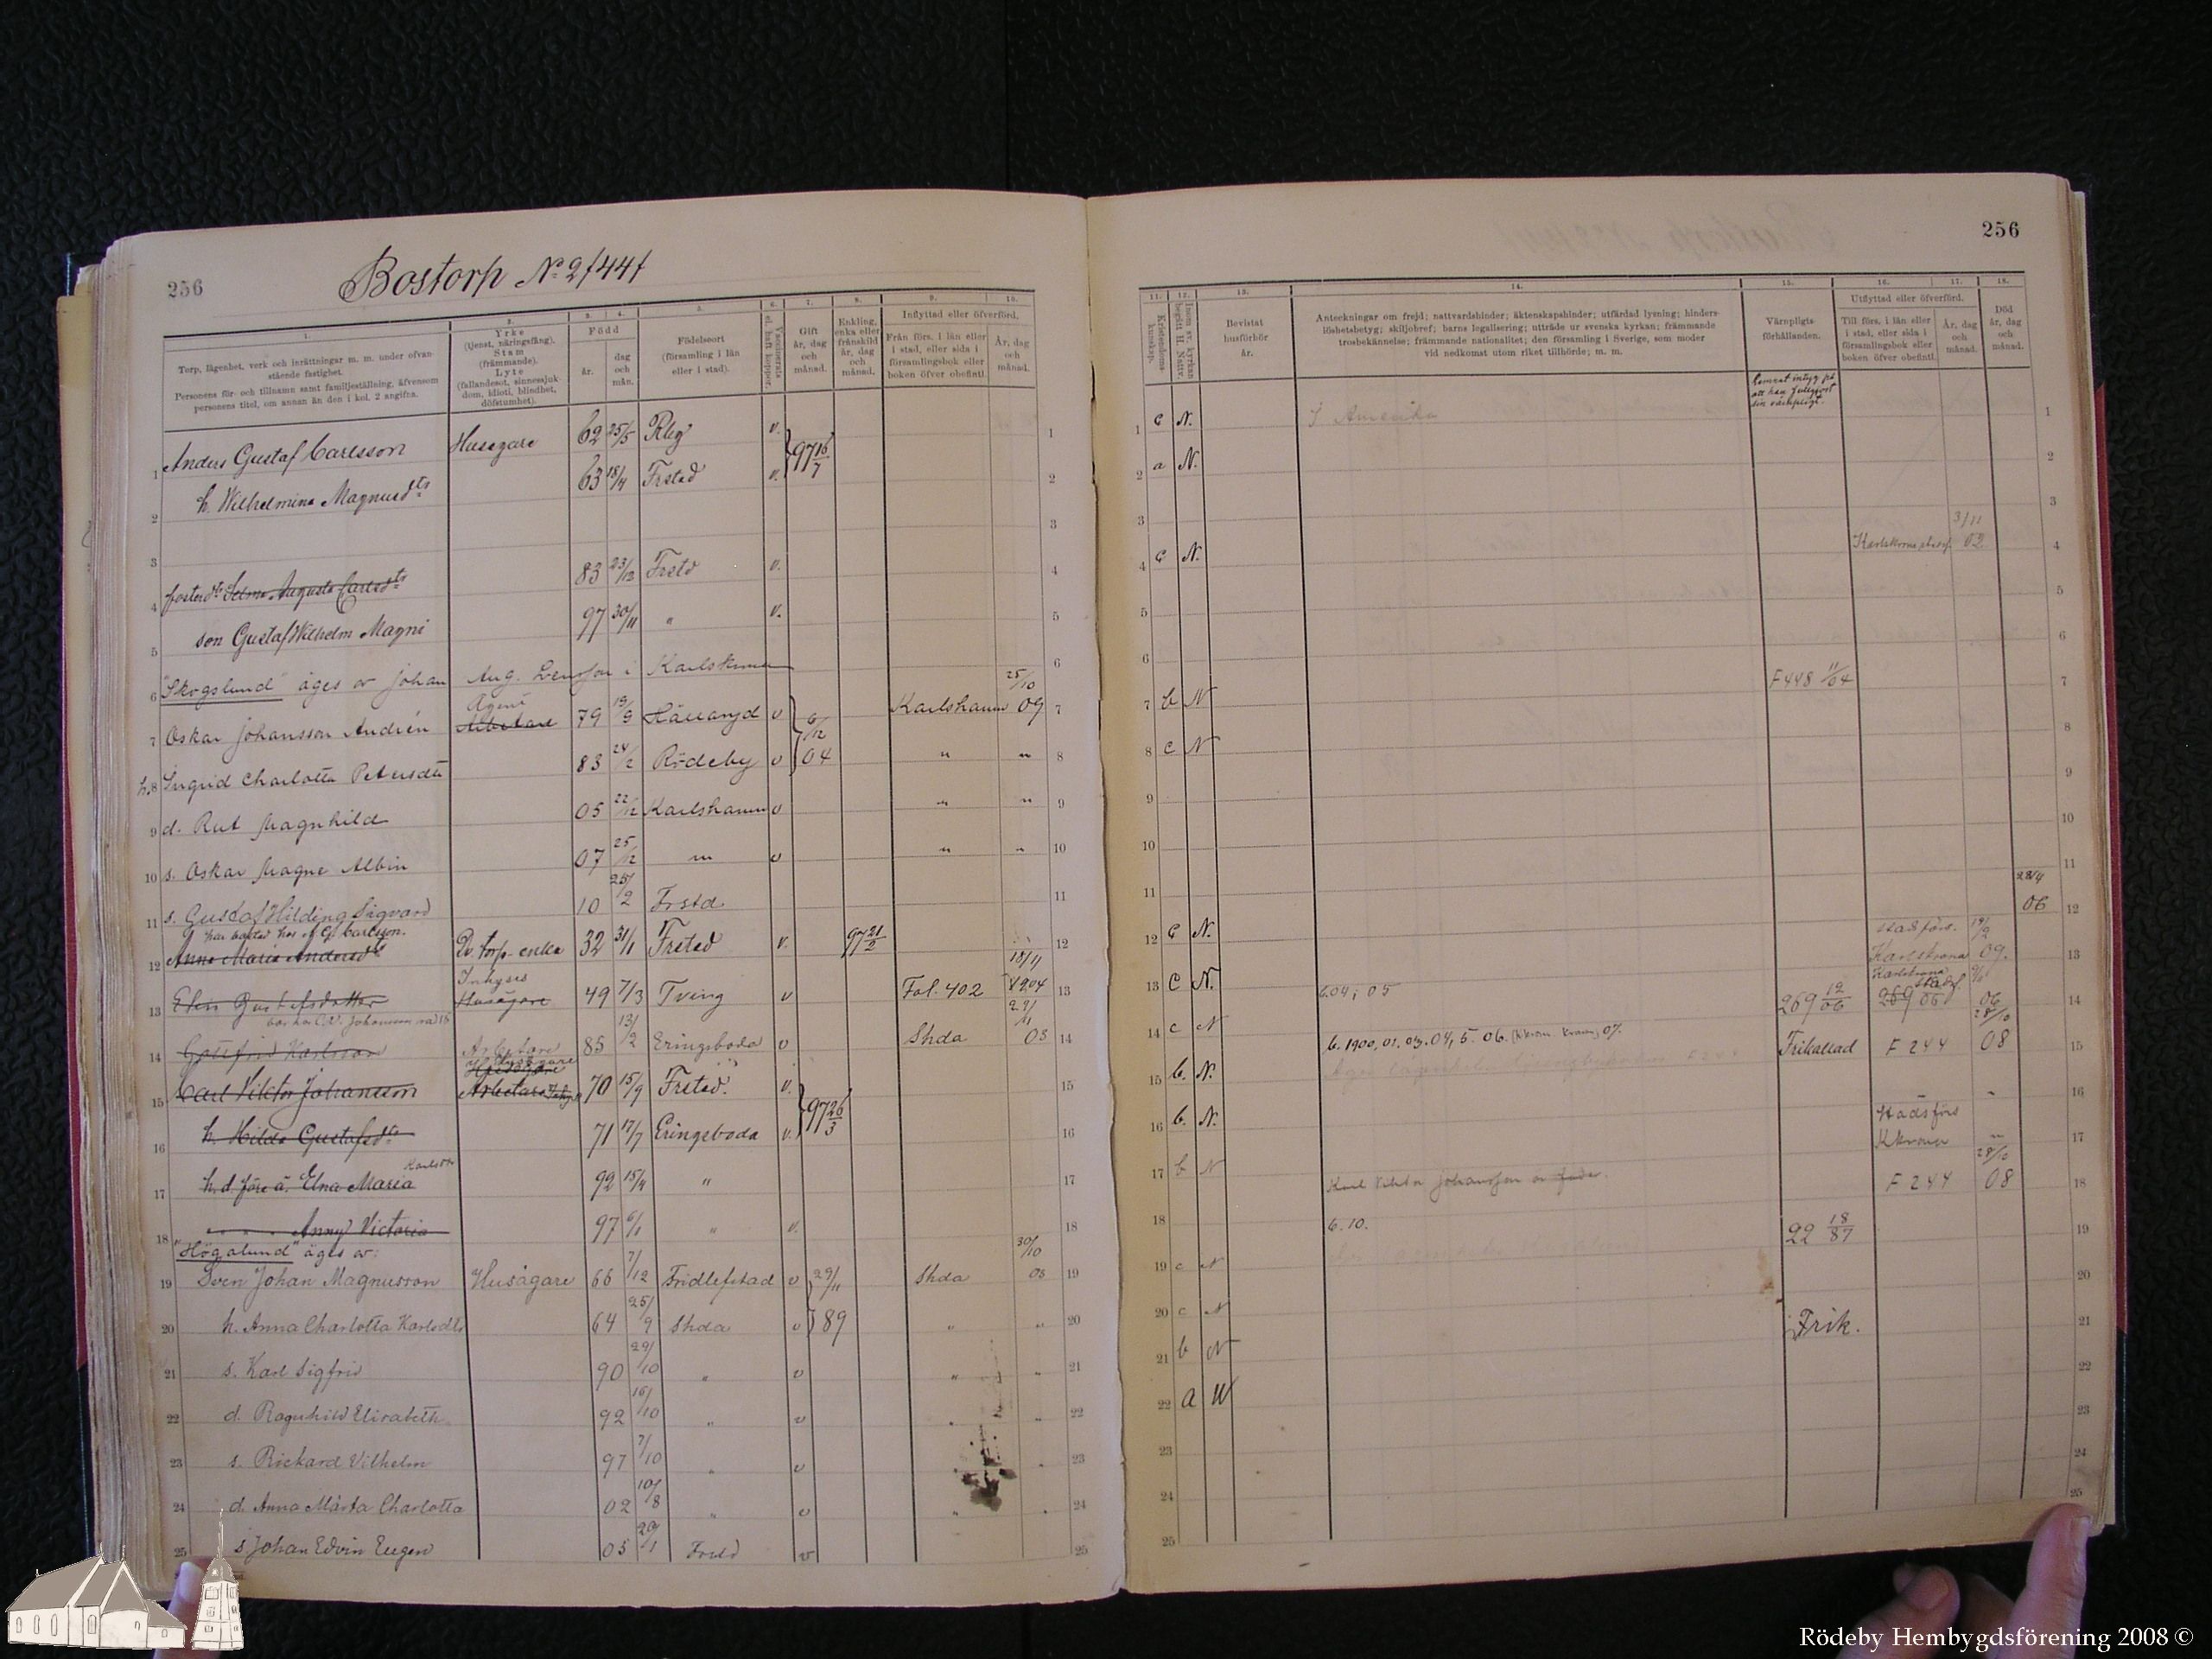 256
Bostorp No 2/441
1.
Torp, lägenhet, verk och inrättningar m. m. under ofvan-
stående fastighet.
Personens för- och tillnamn samt familjeställning, äfvensom
personens titel, om annan än den i kol. 2 angifna.
2.
Yrke
(tjenst, näringsfång).
Stam
(främmande).
Lyte
(fallandesot, sinnessjuk-
dom, idioti, blindhet,
döfstumhet).
3. 4.
Född
år.
dag
och
mån.
5.
Födelseort
(församling i län
eller i stad).
6.
Vaccinerats
el. haft koppor.
7.
Gift
år, dag
och
månad.
8.
Enkling,
enka eller
frånskild
år, dag
och
månad.
9. 10.
Inflyttad eller öfverförd.
Från förs. i län eller
i stad, eller sida i
församlingsbok eller
boken öfver obefintl.
År, dag
och
månad.
1 Anders Gustaf Carlsson Husegare 62 25/5 Rby v. 97 16/7 1
2 h. Wilhelmina Magnusdts 63 18/4 Frstad v. 2
3 3
4 fosterdt Selma Augusta Carlsdts 83 23/12 Frstd v. 4
5 son Gustaf Wilhelm Magni 97 30/11 " v. 5
6 "Skogslund" äges av Johan Aug. i Karlskrona 6
7 Oskar Johansson Andrén Agent Arbetare 79 19/9 Hällaryd v 6/12 04 Karlshamn 25/10 09 7
h. 8 Ingrid Charlotta Petersdtr 83 24/2 Rödeby v " " 8
9 d. Rut Magnhild 05 22/12 Karlshamn v " " 9
10 s. Oskar Magne Albin 07 25/12 " v " " 10
11 s. Gustaf Hilding Sigvard 10 25/2 Frstd. 11
har bostad hos A. G. Carlsson.
12 Anna Maria Andersdt Do torp-enka 32 31/1 Frstad v. 97 21/2 12
13 Elin Gustafsdotter Inhyses Husägare 49 7/3 Tving v Fol. 402 18/11 1904 13
14 Gottfrid Karlsson Arbetare 85 13/2 Eringsboda v Shda 03 14
15 Carl Viktor Johansson Arbetare 70 15/9 Frstad. v. 97 26/3 15
16 h. Hilda Gustafsdts 71 17/7 Eringsboda v. 16
Karlsdtr
17 h. d. före ä. Elna Maria 92 15/4 " 17
18 " " " Anny Victoria 97 6/1 " v. 18
"Högalund" äges av:
19 Sven Johan Magnusson Husägare 66 7/12 Fridlefstad v 29/11 89 Shda 30/10 05 19
20 h. Anna Charlotta Karlsdtr 64 25/9 Shda v " " 20
21 s. Karl Sigfrid 90 29/10 " v " " 21
22 d. Ragnhild Elisabeth 92 16/10 " v " " 22
23 s. Rickard Vilhelm 97 7/10 " v " 23
24 d. Anna Märta Charlotta 02 10/8 " v " " 24
25 s. Johan Edvin Eugen 05 20/1 Frstd v 25
256
11.
Kristendoms-
kunskap.
12.
Inom sv. kyrkan
begått H. Nattv.
13.
Bevistat
husförhör
år.
14.
Anteckningar om frejd; nattvardshinder; äktenskapshinder; utfärdad lysning; hinders-
löshetsbetyg; skiljobref; barns legalisering; utträde ur svenska kyrkan; främmande
trosbekännelse; främmande nationalitet; den församling i Sverige, som moder
vid nedkomst utom riket tillhörde; m. m.
15.
Värnpligts-
förhållanden.
16. 17.
Utflyttad eller öfverförd.
Till förs. i län eller
i stad, eller sida i
församlingsbok eller
boken öfver obefintl.
År, dag
och
månad.
18.
Död
år, dag
och
månad.
1 c N. I Amerika 1
att han fullgjort
sin värnpligt.
2 a N. 2
3 3
4 c N. Karlskrona 3/11 02 4
5 5
6 6
7 b N F 448 11/04 7
8 c N 8
9 9
10 10
11 11
12 c N. 28/4 06 12
13 c N. 6.04; 05 stadsförs. Karlskrona 19/2 09. 13
14 c N 6. 1900, 01. 03. 04, 5. 06. 07. 269 12/06 Karlskrona 06 14
15 b. N. Frikallad F 244 28/10 08 15
16 b. N. " 16
17 b N Karl Viktor Johansson är fader. Stadsförs Kkrona " 17
18 6. 10. F 244 28/10 08 18
19 c N 22 18/87 19
20 c N 20
21 b N Frik. 21
22 a N 22
23 23
24 24
25 25
Rödeby Hembygdsförening 2008 ©